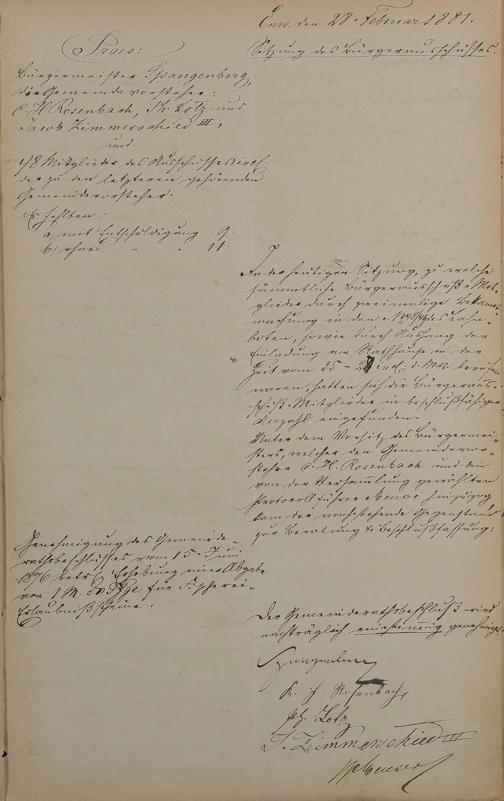 Ems, den 28. Februar 1881.
Sitzung des Bürgerausschusses.
Praes:
Bürgermeister Spangenberg,
die Gemeindevorsteher:
C. H. Rosenbach, Ph. Lotz und
Jacob Zimmerschied III,
und
48 Mitglieder des Ausschusses incl.
der zu den letzteren gehörenden
Gemeindevorsteher.
Es fehlten:
a, mit Entschuldigung 9.
b, ohne " 11.
In der heutigen Sitzung, zu welche
sämmtliche Bürgerausschuß-Mit-
glieder durch zweimalige Bekannt-
machung in den
boten, sowie durch Aushang der
Einladung am Rathhause in der
Zeit vom 25 – incl. d. Mts. berufen
waren, hatten sich die Bürgeraus-
schuß-Mitglieder in beschlußfähiger
Anzahl eingefunden.
Unter dem Vorsitz des Bürgermei-
sters, welcher den Gemeindevor-
steher C. H. Rosenbach und den
von der Versammlung gewählten
Protocollführer hinzuzog
kam der nachstehende Gegenstand
zur Berathung & Beschlußfassung:
Genehmigung des Gemeinde-
rathsbeschlusses vom 15. Juni
1876 betr. Erhebung einer Abgabe
von 1 M. 50 Pfge. für Fischerei-
Erlaubnißscheine.
Der Gemeinderathsbeschluß wird
nachträglich einstimmig genehmigt.
Spangenberg
C. H. Rosenbach,
Ph. Lotz
J. Zimmerschied III